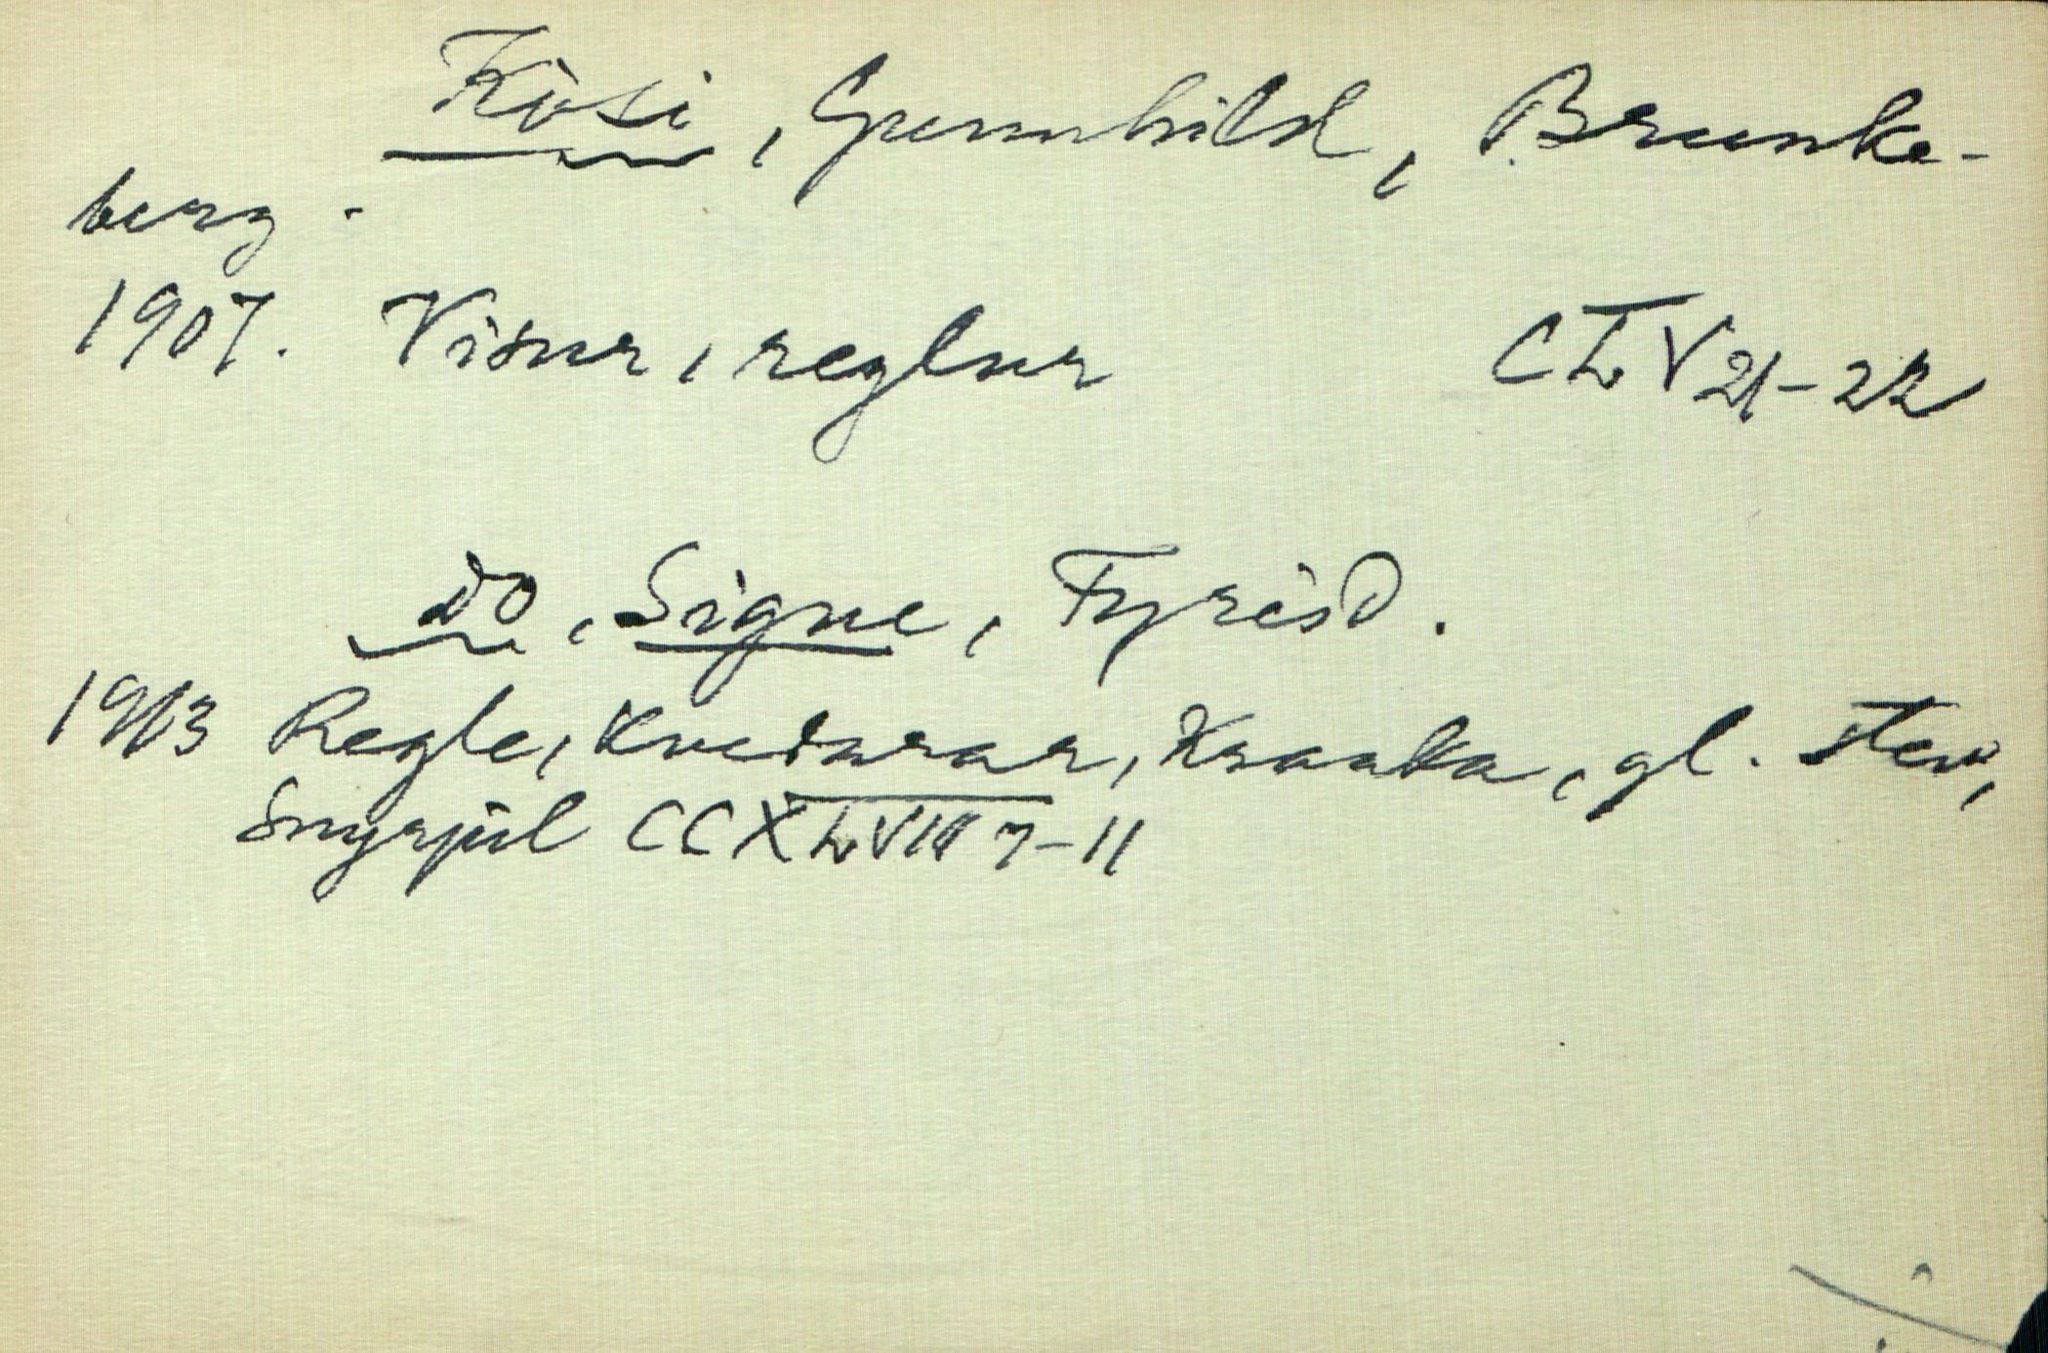 Kåsi, Gunnhild, Brunke-
berg.
1907. Visur, reglur CLV 21-22
do, Signe, Fyrisd.
1913 Regle, Kvednrar, Kraaka, gl. stev,
Snyrjul CCXLVIII 7-11